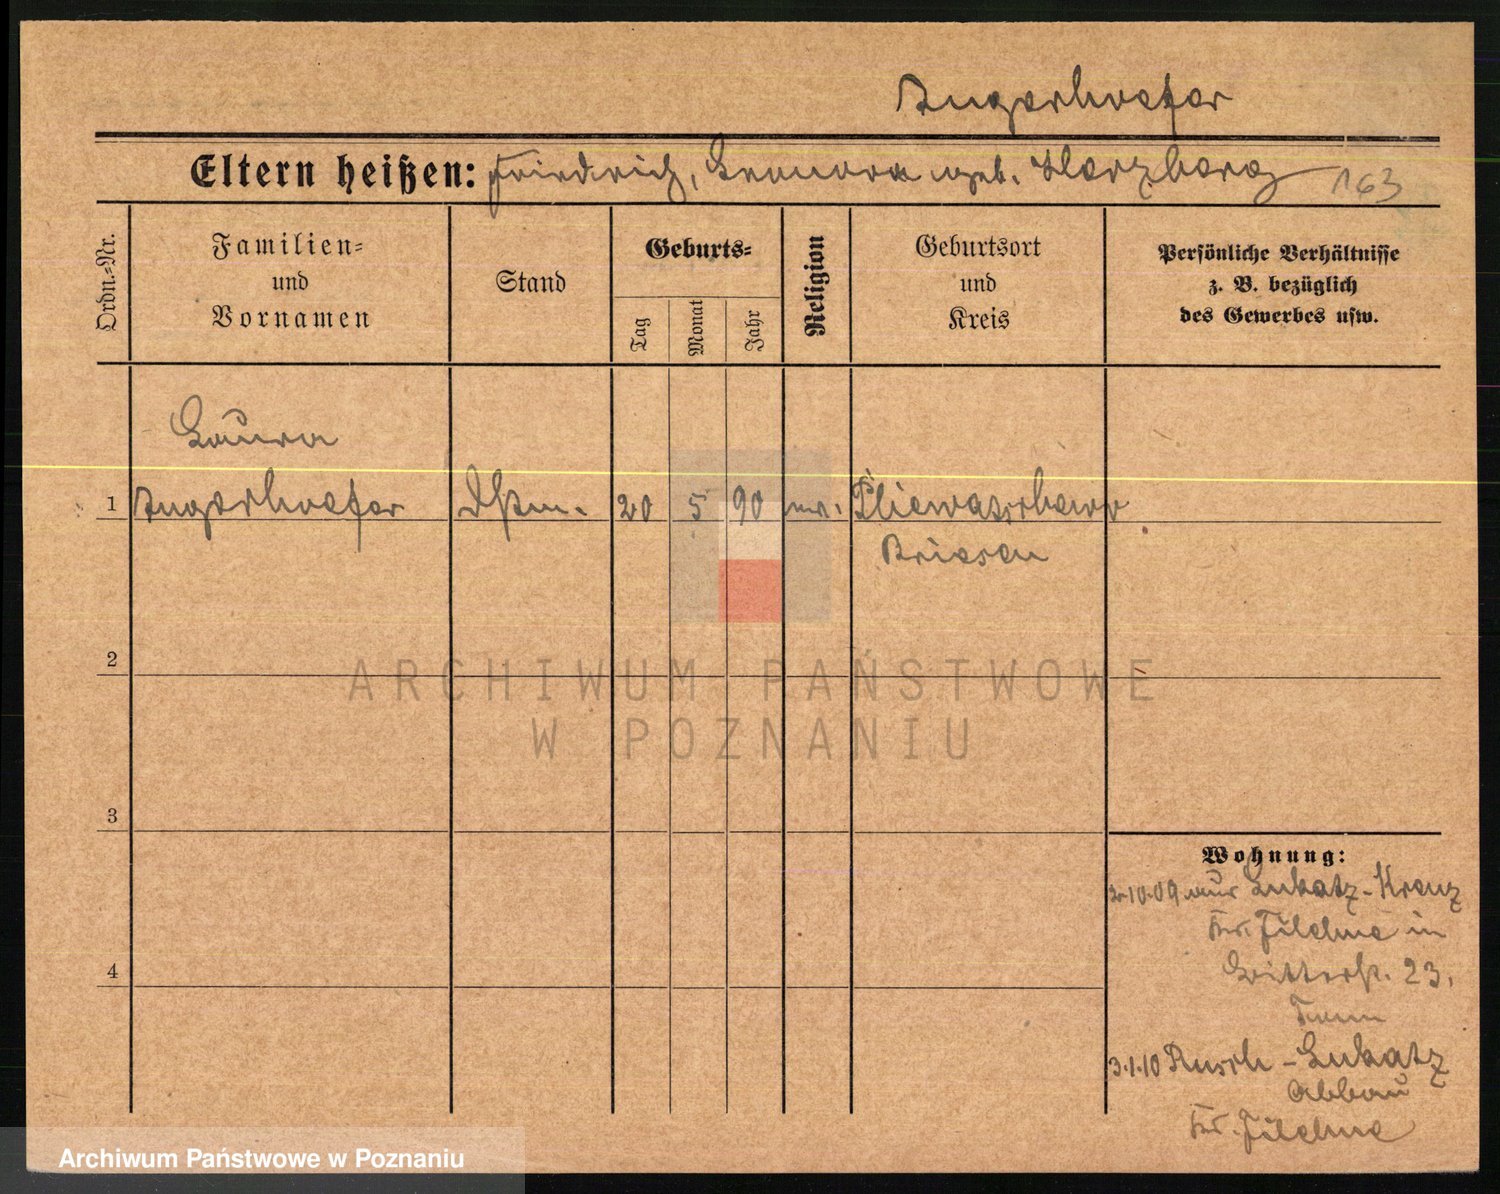 Angerhoefer
Eltern heißen: Friedrich, Lenora geb. Herzberg 163
Ordn.-Nr.
Familien-
und
Vornamen
Stand
Geburts-
Tag
Monat
Jahr
Religion
Geburtsort
und
Kreis
Persönliche Verhältnisse
z. B. bezüglich
des Gewerbes usw.
Laura
1 Angerhoefer Dstm. 20 5 90 ev.
Briesen
2
3
4
Wohnung:
2.10.09 aus Lukatz-Kreuz
Kr. Filehne in
Ritterst. 23.
3.1.10 Rusch-Lukatz
Abbau
Kr. Filehne
ARCHIWUM PAŃSTWOWE
W POZNANIU
Archiwum Państwowe w Poznaniu